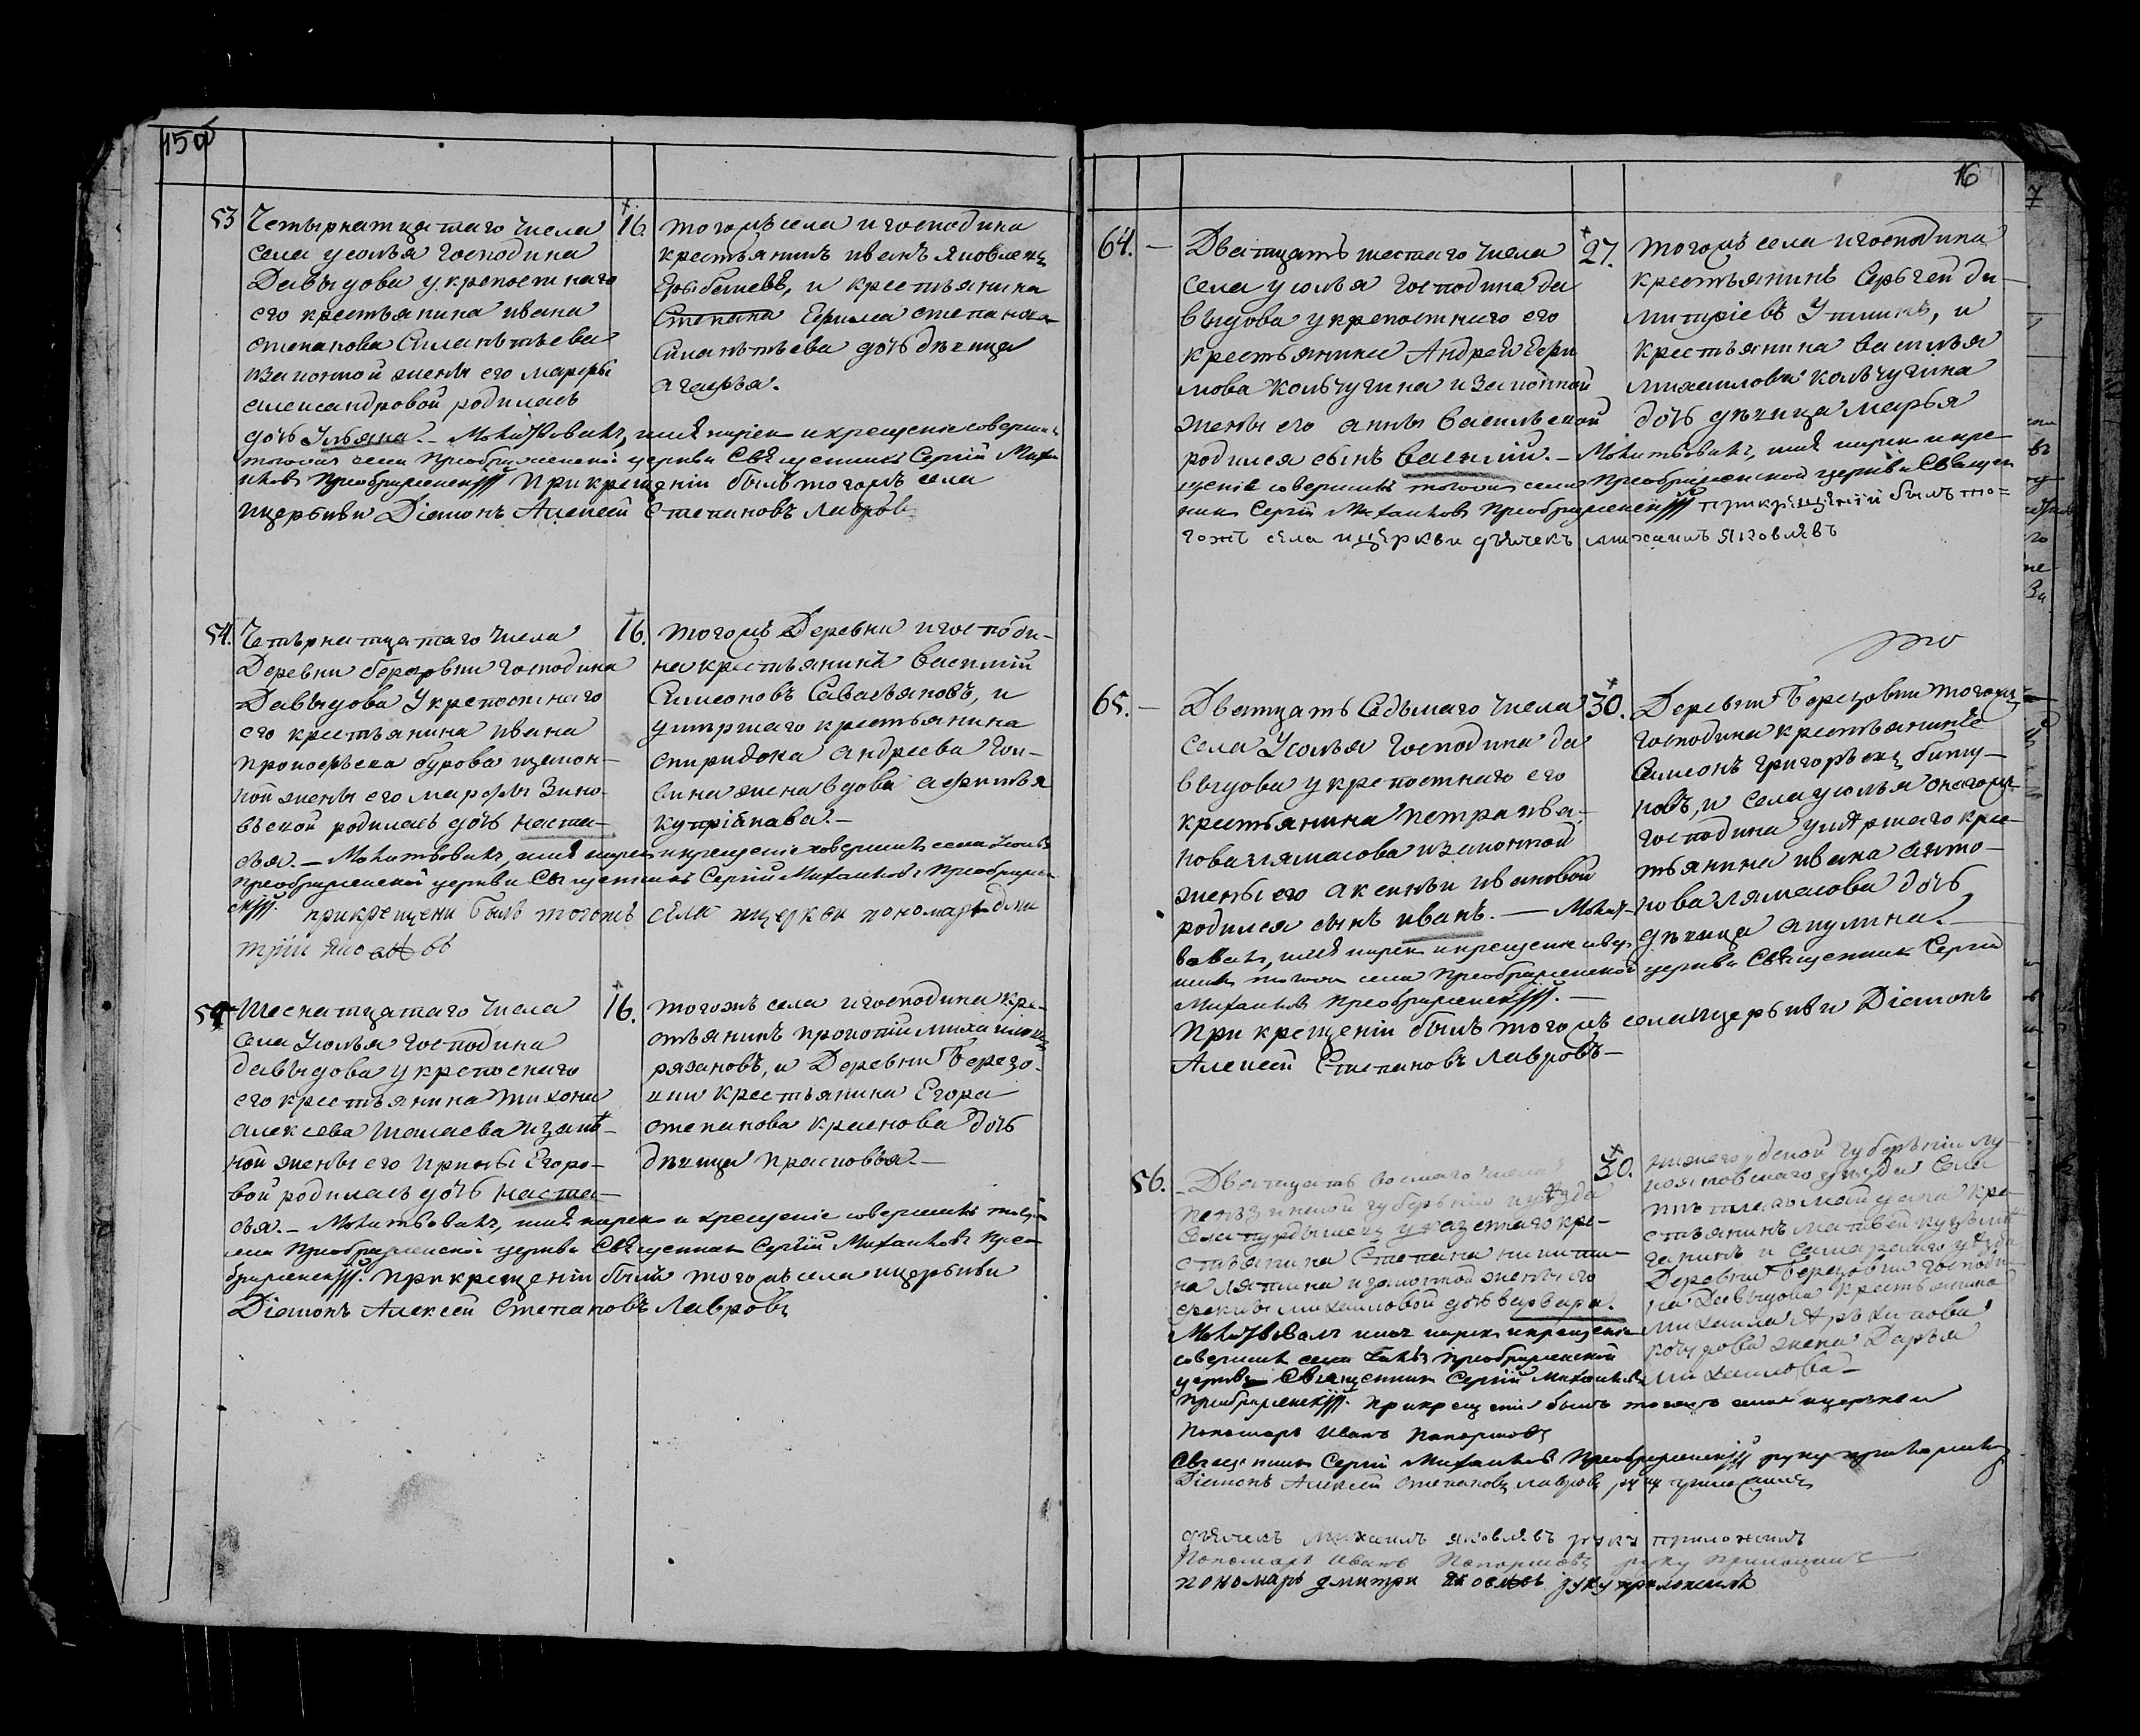 150
53 Четырнатцатаго числа
села усолья господина
Давыдова укрепостнаго
его крестьянина ивана
степанова
изаконной жены его марфы
александровой родилась
дочь Ульяна. – Молитвовалъ, имя нарекъ икрещение соверши
тогожъ села Преображенской церкви Священникъ Сергій Миха
иловъ Преображенскій При крещеніи былъ тогожъ села
ицерькви Діаконъ Алексей Степановъ Лавровъ
16 тогожъ села игосподина
крестьянинъ иванъ яковлевъ
и крестьянина
Степана Ефима степанова
дочь девица
агафья.
54. Четырнатцатаго числа
Деревни березовки господина
Давыдова Укрепостнаго
его крестьянина ивана
прокофьева бурова изакон-
ной жены его марфы Зино-
вьевой родилась дочь наста-
сья. – Молитвовалъ, имя нарекъ икрещение совершилъ села Усолья
Преображенской церкви Священникъ Сергій Михаиловъ Преображен
скій. прикрещени былъ тогожъ села ицеркви пономарь дми
трій яковлевъ
16. тогожъ Деревни игосподи-
на крестьянинъ василій
Симоновъ Савасьяновъ, и
умершаго крестьянина
спиридона андреева
жена вдова
купріянава. –
Шеснатцатаго числа
села Усолья господина
давыдова укрепоснаго
его крестьянина тихона
алексева изако-
ной жены его ирины Егоро-
вой родилась дочь наста-
сья. – Молитвовалъ, имя нарекъ и крещение совершилъ тогожъ
села Преображенской церкви Священникъ Сергій Михаиловъ Прео
браженскій. При крещеніи былъ тогожъ села ицерькви
Діаконъ Алексей Степановъ Лавровъ
16. тогожъ села игосподина кре-
стьянинъ прокопій михаиловъ
рязановъ, и Деревни Березо-
вки крестьянина Егора
степанова краснова дочь
девица прасковья. –
16
64. – Дватцать шестаго числа
села усолья господина да
выдова укрепостнаго его
крестьянина Андрея Ефи
мова кольчугина изаконной
жены его анны васильевой
родился сынъ василий. – Молитвовалъ, имя нарекъ икре
щеніе совершилъ тогожъ села Преображенской церкви Священ
никъ Сергій Михаиловъ Преображенскій прикрещеніи былъ то=
гожъ села ицеркви дьячекъ михаилъ яковлевъ
27. тогожъ села игосподина
крестьянинъ Сергей ди-
митріевъ Уткинъ, и
крестьянина василья
михаилова кольчугина
дочь девица марья
65. – Дватцать Седьмаго числа
села Усолья господина да
выдова укрепостнаго его
крестьянина петра ива-
нова лямасова изаконной
жены его аксиньи ивановой
родился сынъ иванъ. – Молит-
вовалъ, имя нарекъ икрещение совер-
шилъ тогожъ села Преображенской церкви Священникъ Сергій
Михаиловъ Преображенскій. –
При крещеніи былъ тогожъ села ицерькви Діаконъ
Алексей Степановъ Лавровъ –
30. Деревни Березовки тогожъ
господина крестьянинъ
Симонъ григорьевъ
и села усолья онагожъ
господина умершаго крес-
тьянина ивана анто-
нова лямасова дочь
девица акулина.
56. Дватцать восмаго числа
пензинской губерьніи
крес-
стьянина Степана никити-
на изаконной жены его
михаиловой дочь варвара.
Молитвовалъ имя нарекъ икрещеніе
совершилъ села Преображенской
церкви Священникъ Сергій Михаиловъ
Преображенскій. Прикрещеніи былъ тогожъ села ицеркви
Пономарь Иванъ
Священникъ Сергій Михаиловъ Преображенскій руку приложилъ
Діаконъ Алексей Степановъ Лавровъ руку приложилъ
дьячекъ михаилъ яковлевъ руку приложилъ
Пономарь Иванъ руку приложилъ
пономарь дмитри яковлевъ руку приложилъ
30. нижегородской губерьніи лу-
кояновскаго уезда села
кре-
стьянинъ матвей
и Самарскаго уезда
Деревни Березовки господи-
на Давыдова крестьянина
михаила Архипова
жена Дарья
михаилова –